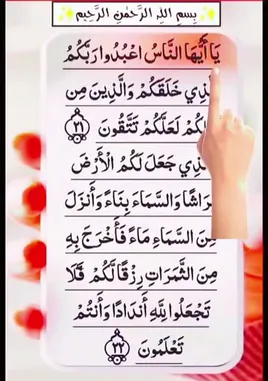 بِسْمِ اللهِ الرَّحْمٰنِ الرَّحِيْمِ
يَا أَيُّهَا النَّاسُ اعْبُدُوا رَبَّكُمُ
خَلَقَكُمْ وَالَّذِينَ مِن
لَعَلَّكُمْ تَتَّقُونَ ٢١
جَعَلَ لَكُمُ الْأَرْضَ
وَالسَّمَاءَ بِنَاءً وَأَنزَلَ
مِنَ السَّمَاءِ مَاءً فَأَخْرَجَ بِهِ
مِنَ الثَّمَرَاتِ رِزْقًا لَّكُمْ فَلَا
تَجْعَلُوا لِلَّهِ أَندَادًا وَأَنتُمْ
تَعْلَمُونَ ٢٢